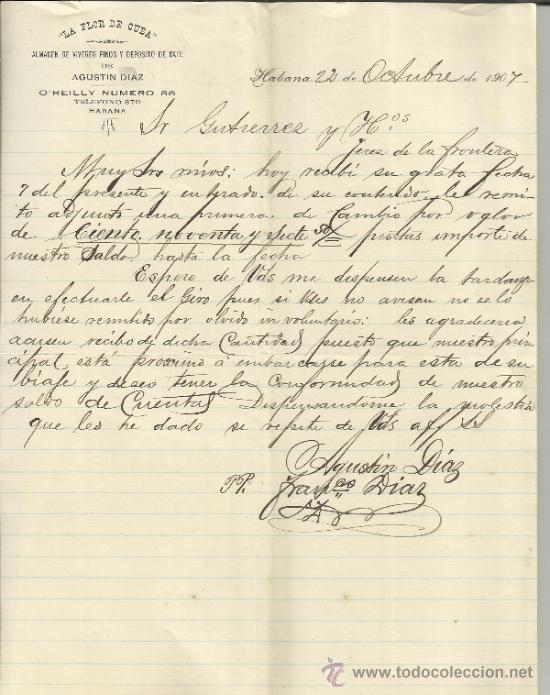 "LA FLOR DE CUBA"
ALMACEN DE VIVERES FINOS Y DEPOSITO DE CAFE
DE
AGUSTIN DIAZ
O'REILLY NUMERO 86
TELEFONO 870
HABANA
Habana 22 de Octubre de 1907
Sr Gutierrez y Hos
Jerez de la frontera
Muy Srs mios: hoy recibí su grata fecha
7 del presente y enterado de su contenido le remi-
to adjunto una primera de Cambio por valor
de Ciento noventa y siete 50/ pesetas importe de
nuestro Saldo hasta la fecha
Espero de Vds me dispensen la tardanza
en efectuarle el Giro pues si Vdes no avisan no se lo
hubiése remitido por olvido involuntario: les agradeceria
acusen recibo de dicha Cantidad puesto que nuestro prin
cipal está proximo á embarcarse para esta de su
biaje y deseo tener la Conformidad de nuestro
saldo de Cuentas Dispensandome la molestia
que les he dado se repite de Vds aff SS
Agustin Díaz
PP. Franco Diaz
www.todocoleccion.net